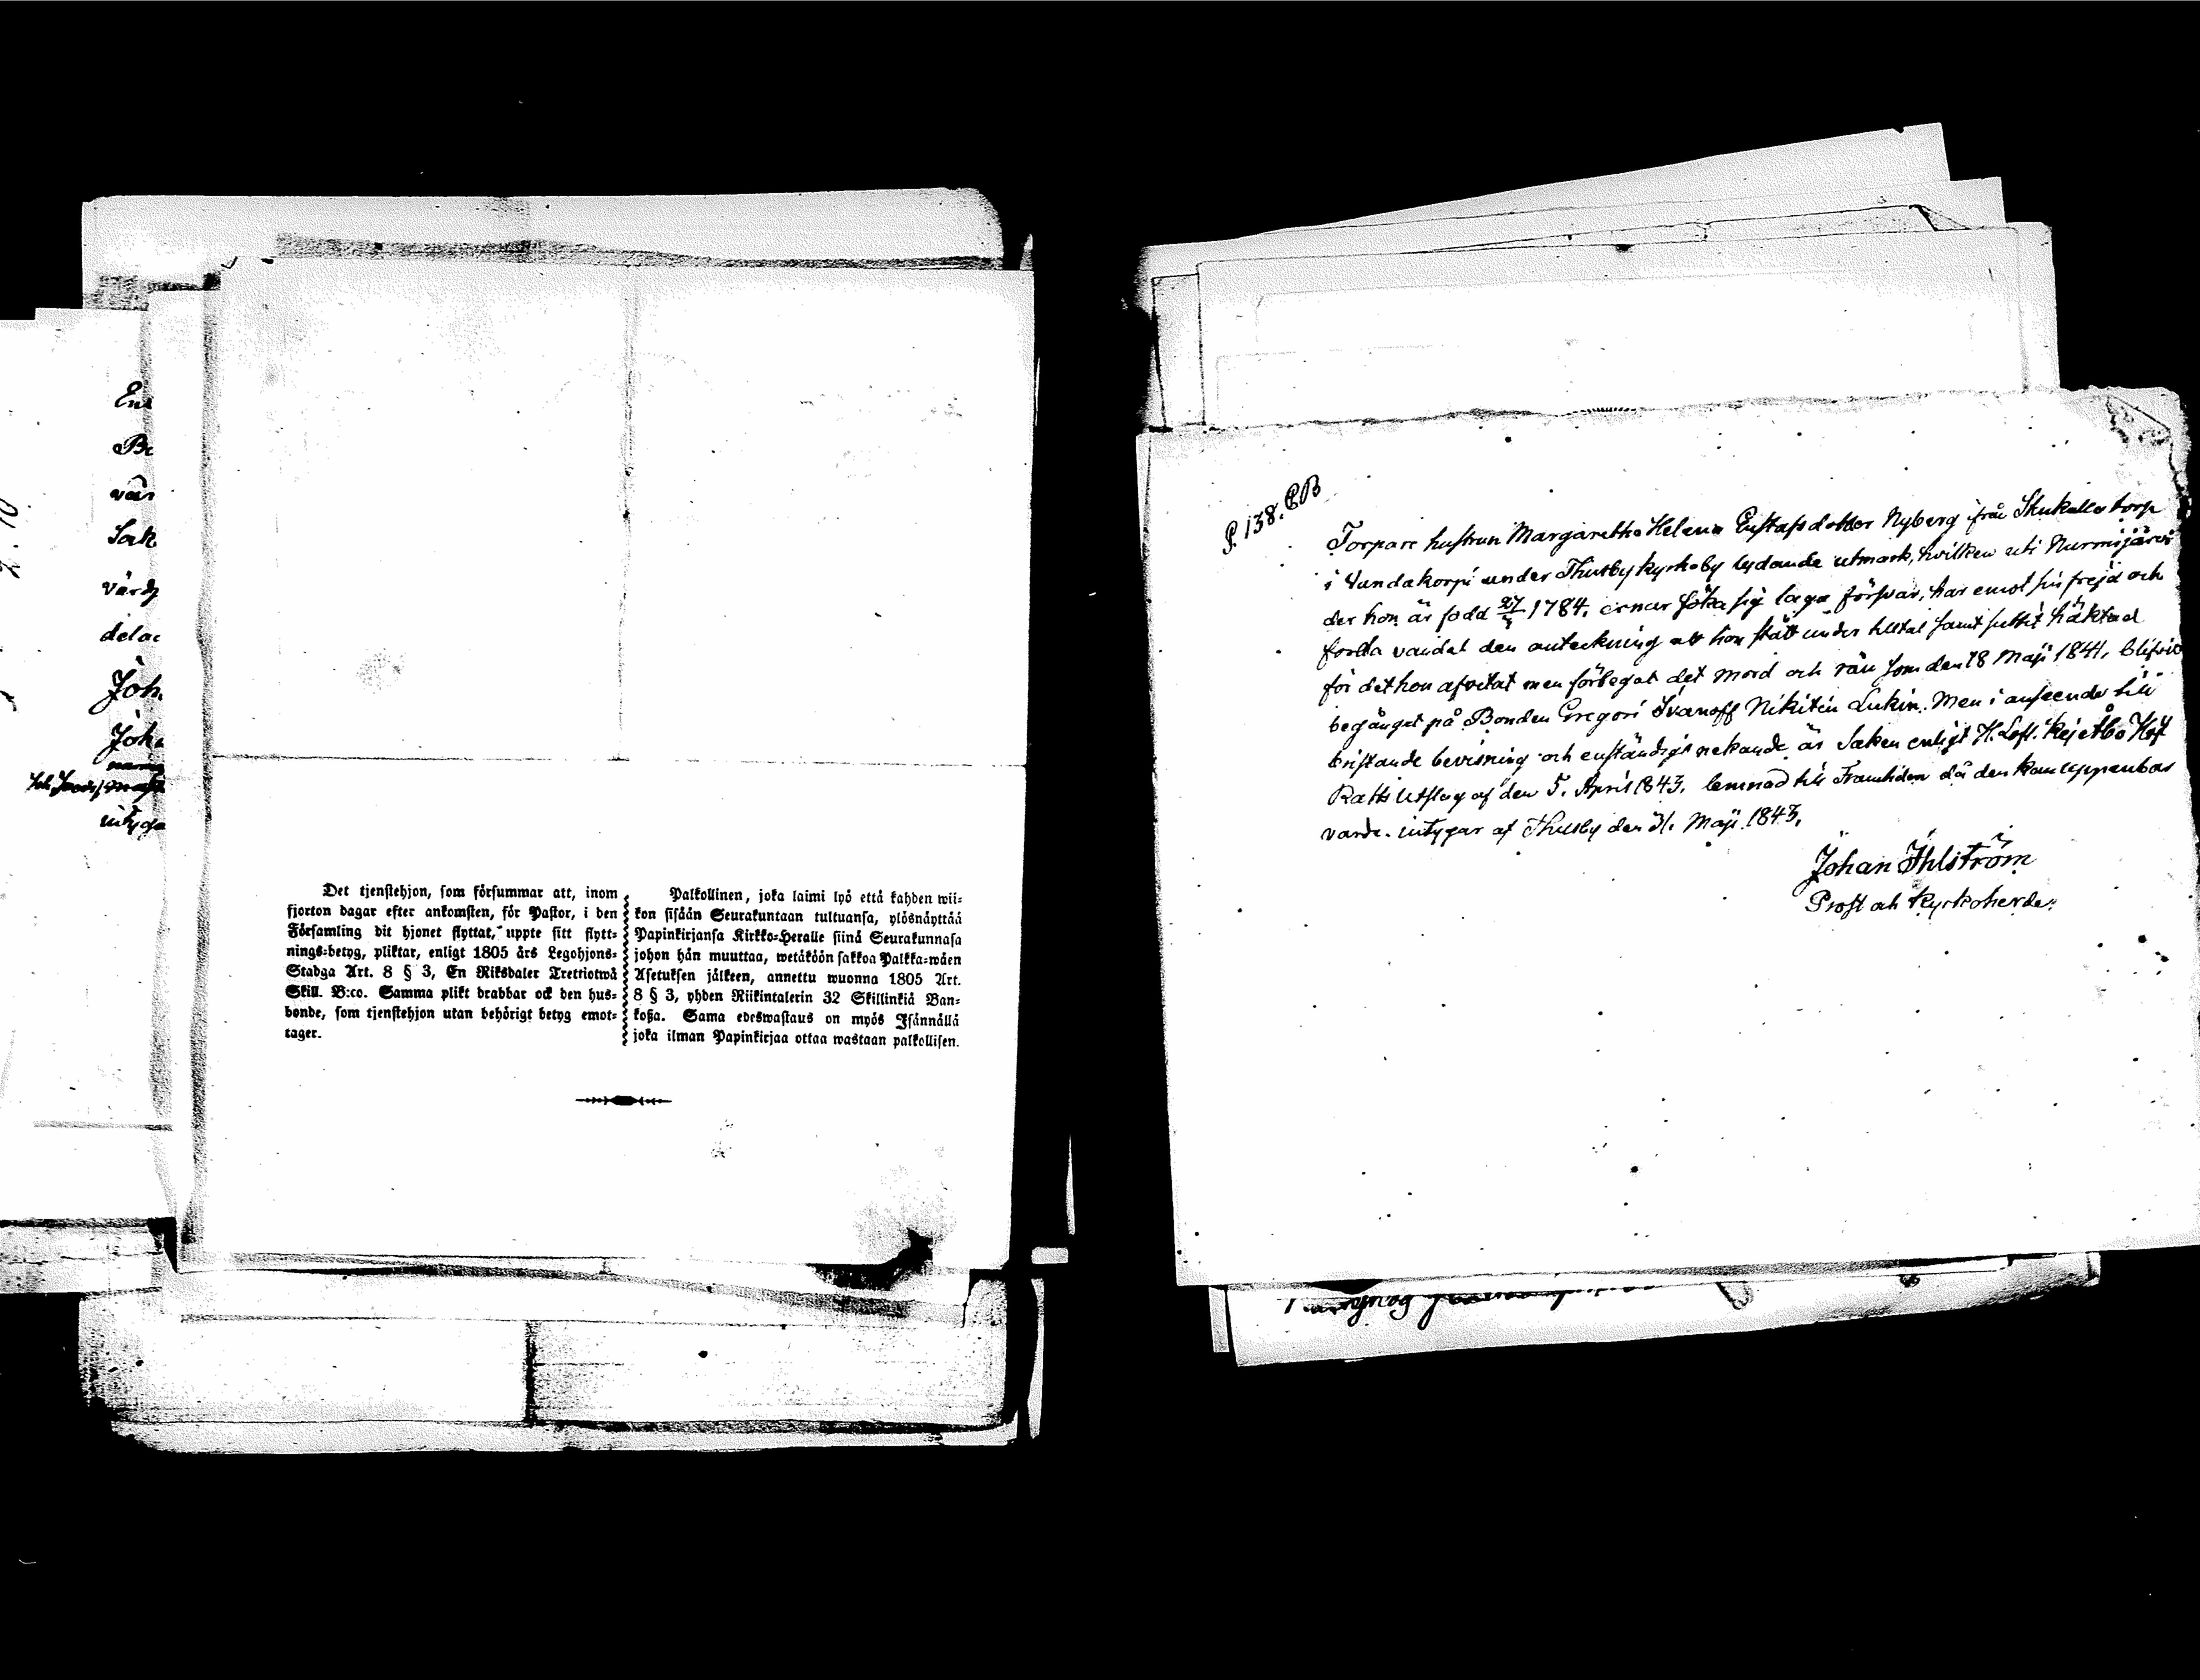 En
Be
vär
Sak
värdj
delac
Joh.
Joh
intyga
Det tjenstehjon, som försummar att, inom
fjorton dagar efter ankomsten, för Pastor, i den
Församling dit hjonet flyttat, uppte sitt flytt-
nings-betyg, pliktar, enligt 1805 års Legohjons-
Stadga Art. 8 § 3, En Riksdaler Trettiotwå
Skill. B:co. Samma plikt drabbar ock den hus-
bonde, som tjenstehjon utan behörigt betyg emot-
tager.
Palkollinen, joka laimi lyö että kahden wii-
kon sisään Seurakuntaan tultuansa, ylösnäyttää
Papinkirjansa Kirkko-Heralle siinä Seurakunnasa
johon hän muuttaa, wetäköön sakkoa Palkka-wäen
Asetuksen jälkeen, annettu wuonna 1805 Art.
8 § 3, yhden Riikintalerin 32 Skillinkiä Ban-
koßa. Sama edeswastaus on myös Isännällä
joka ilman Papinkirjaa ottaa wastaan palkollisen.
P. 138. CB
Torpare hustrun Margaretha Helena Gustafsdotter Nyberg ifrån torp
i Vandakorpi under Thusby kyrkoby lydande utmark, hvilken uti Nurmijärvi
der hon är född 1784, ernar söka sig laga försvar, har emot sin frejd och
förda vandel den anteckning att hon stått under tilltal samt suttit häktad
för det hon afvetat men förtegat det mord och rån som den 18 Maji 1841, blifvit
begånget på Bonden Gregori Ivanoff Nikitin Lukin. Men i anseende till
bristande bevisning och enständigt nekande är Saken enligt H. Lofl. Kej Åbo Hof
Rätts Utslag af den 5. April 1843. lemnad till Framtiden då den kan uppenbar
varda. intygar af Thusby den 31. Maji 1843.
Johan Ihlström
Prost och Kyrkoherde.